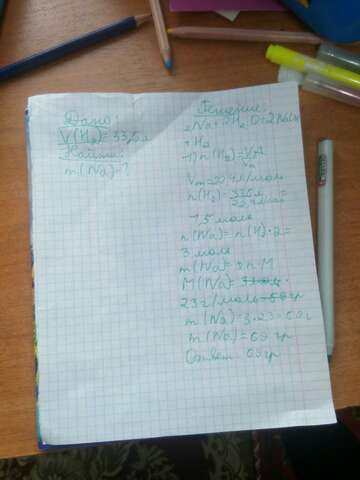 Дано:
V(H₂)= 33,6 л
Найти:
m(Na)-?
Решение:
2Na+2H₂O=2NaOH
+H₂
1) n(H₂)=
Vm=22,4 л/моль
n(H₂)= 33,6 л / 22,4 л/моль =
1,5 моль
n(Na)= n(H₂)·2=
3 моль
m(Na)= n M
M(Na)=
23 г/моль
m(Na)=3·23=69 г
m(Na)=69 гр
Ответ: 69 гр